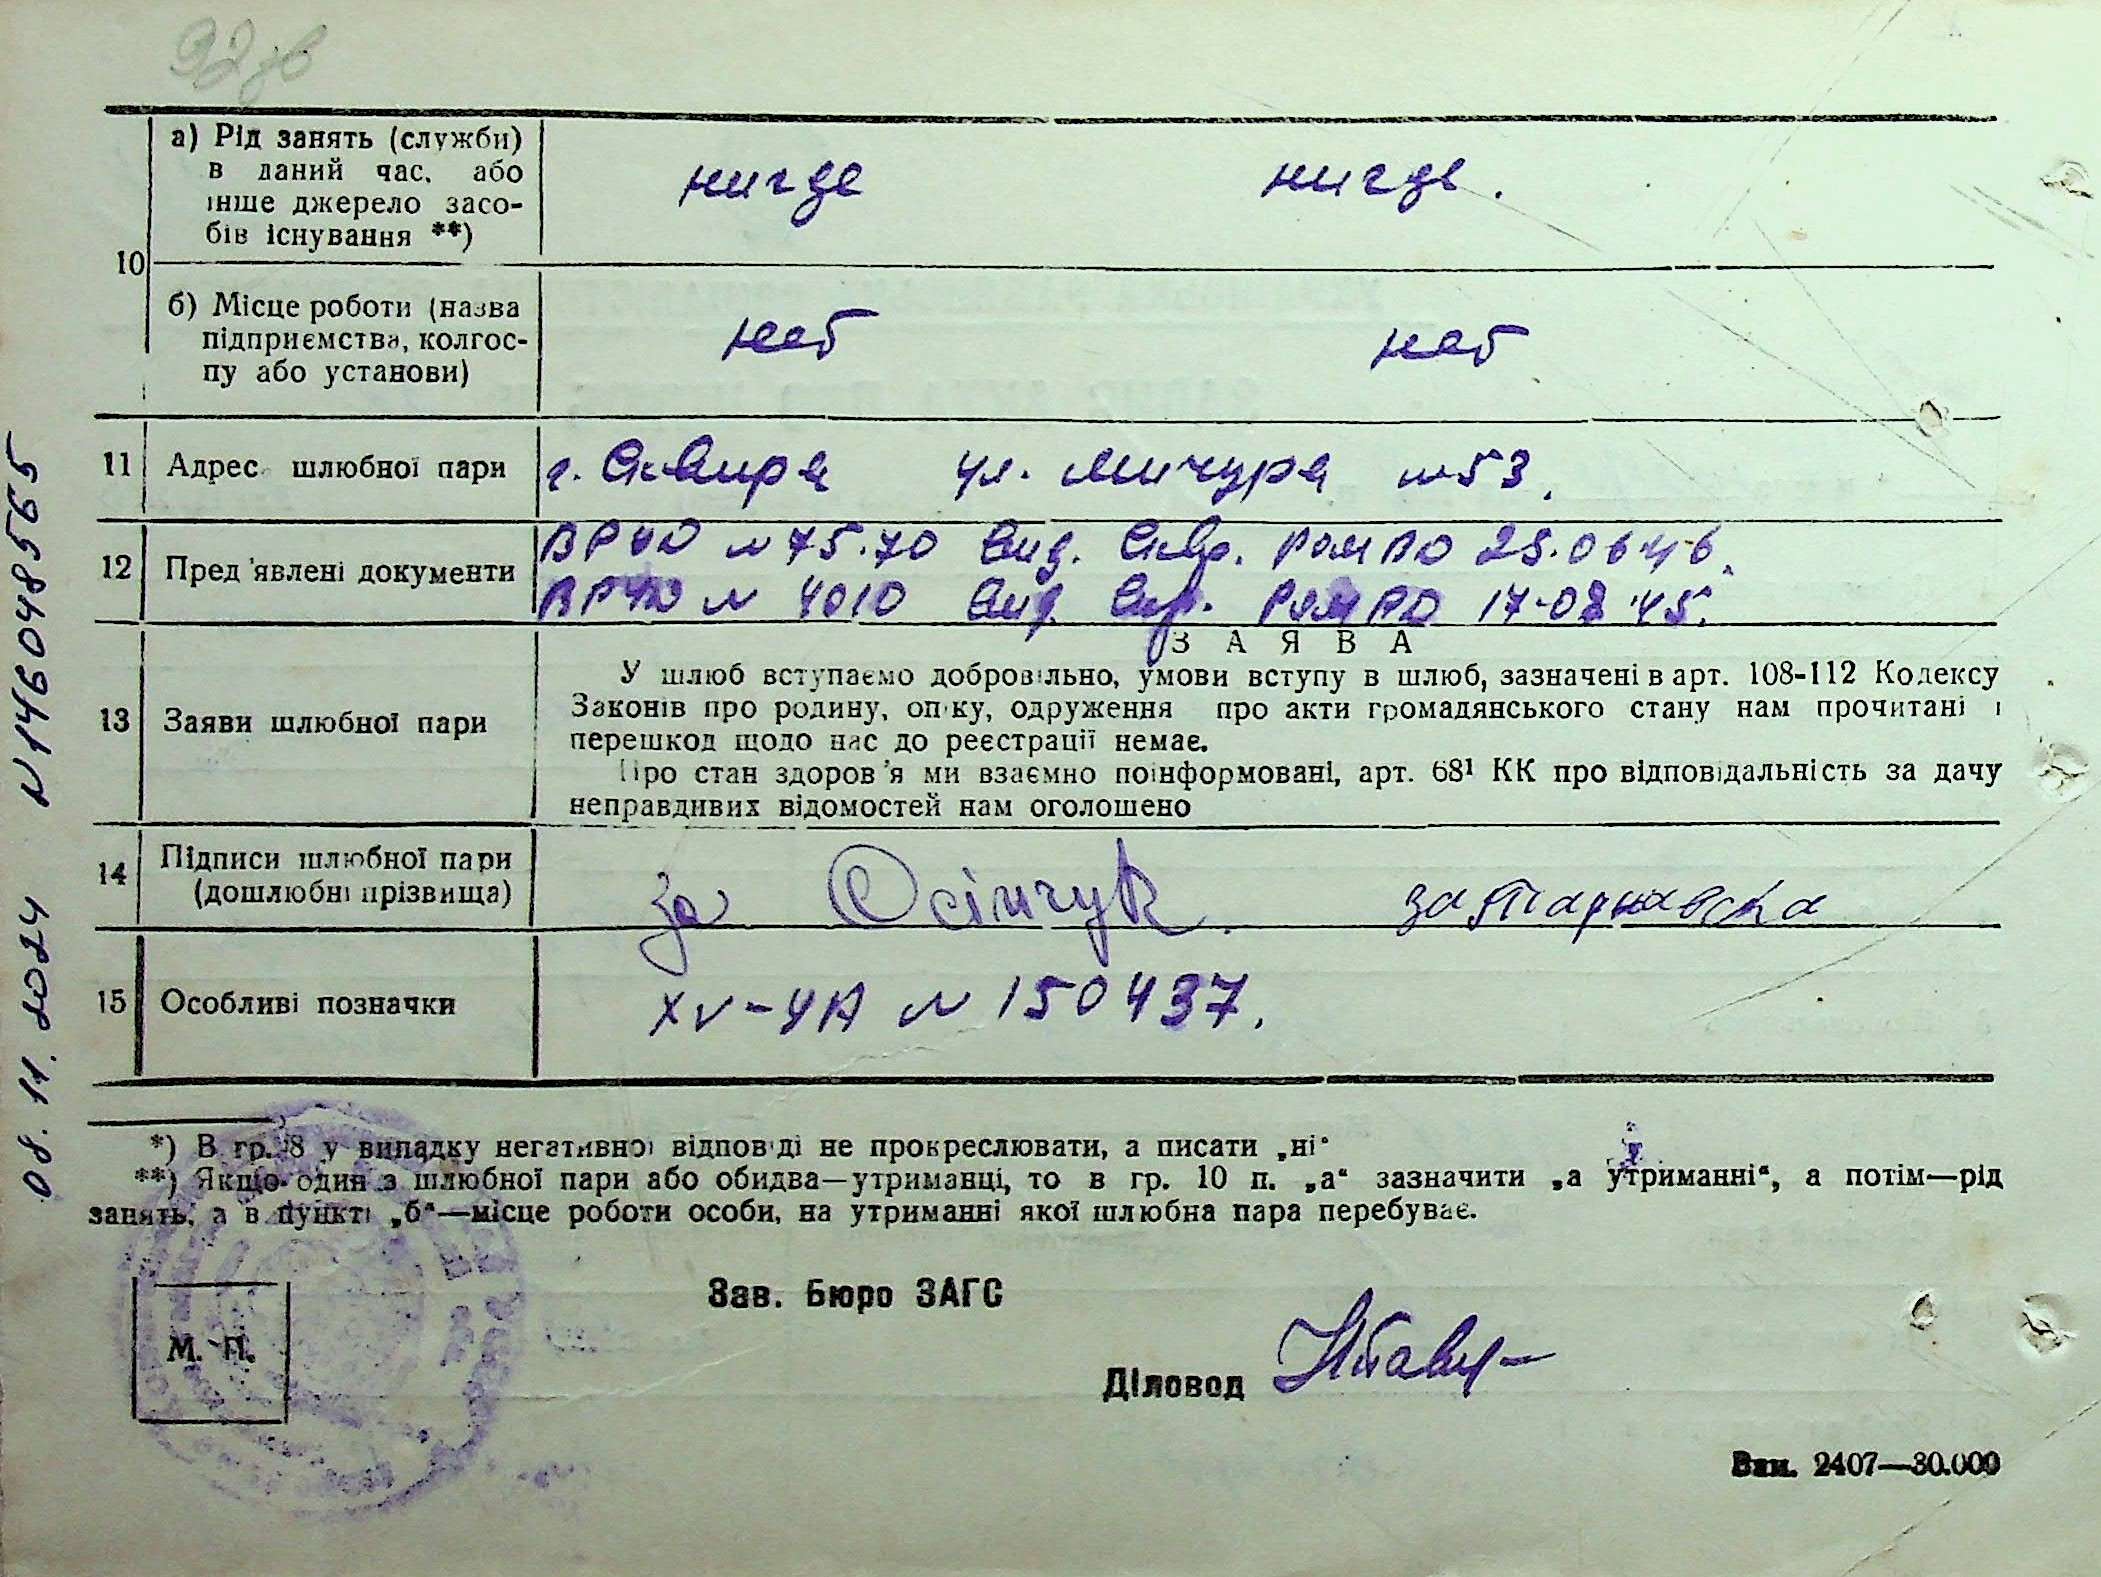 92 зв
а) Рід занять (служби)
в даний час, або
інше джерело засо-
бів існування **)
нигде нигде.
10
б) Місце роботи (назва
підприємства, колгос-
пу або установи)
неб неб
11 Адрес шлюбної пари г. Сквира ул. Мичура №53.
12 Пред'явлені документи
ВРУД №75.70 Вид. Сквр. РОМ 25.06.46.
№ 4010 Вид. Сквр. 17-02 45.
З А Я В А
13 Заяви шлюбної пари
У шлюб вступаємо добровільно, умови вступу в шлюб, зазначені в арт. 108-112 Кодексу
Законів про родину, опіку, одруження про акти громадянського стану нам прочитані і
перешкод щодо нас до реєстрації немає.
Про стан здоров'я ми взаємно поінформовані, арт. 68¹ КК про відповідальність за дачу
неправдивих відомостей нам оголошено
14 Підписи шлюбної пари
(дошлюбні прізвища)
за Осінчук. за Тарнавска
15 Особливі позначки XV-ЧА № 150437.
*) В гр. 8 у випадку негативної відповіді не прокреслювати, а писати „ні“
**) Якщо один з шлюбної пари або обидва—утриманці, то в гр. 10 п. „а“ зазначити „а утриманні“, а потім—рід
занять, а в пункті „б“—місце роботи особи, на утриманні якої шлюбна пара перебуває.
Зав. Бюро ЗАГС
М. П.
Діловод
Зам. 2407—30.000
08.11.2024 №146048565